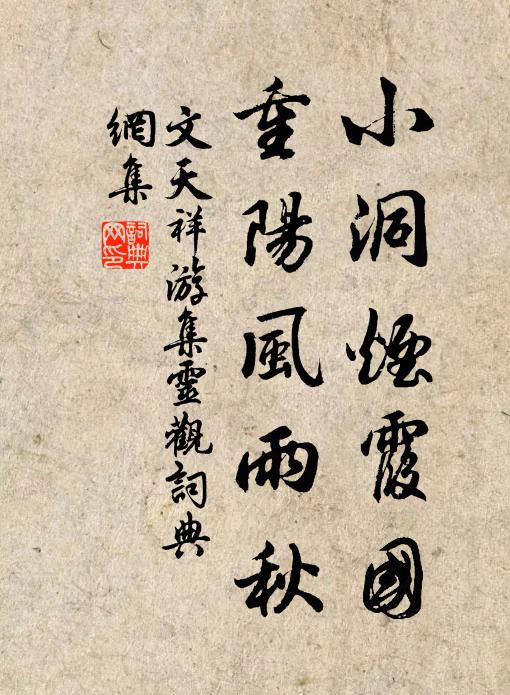 小洞煙霞國
重陽風雨秋
文天祥游集靈觀詞典
網集
詞典
网印